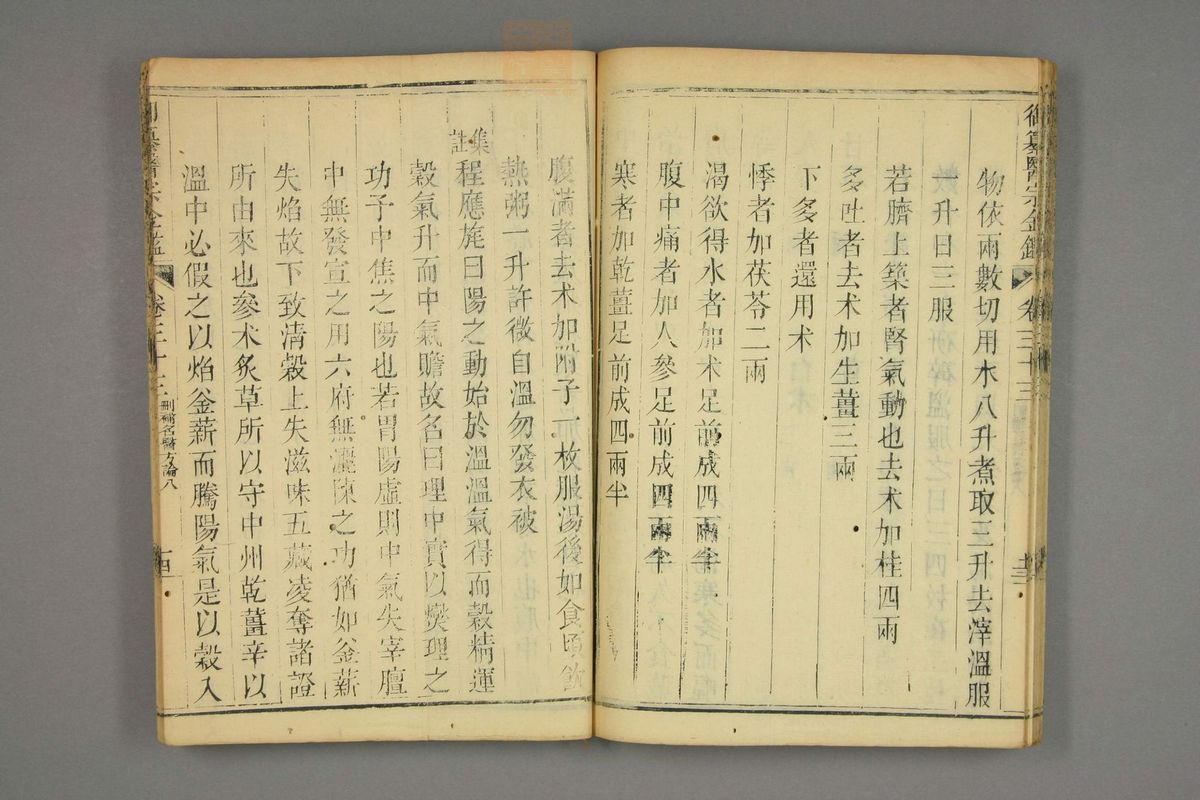 御纂醫宗金鑑 卷三十三 十三
物依兩數切用水八升煮取三升去滓溫服一升
數升日三服
若臍上築者腎氣動也去术加桂四兩
多吐者去术加生薑三兩
下多者還用术
悸者加茯苓二兩
渴欲得水者加术足前成四兩半
腹中痛者加人參足前成四兩半
寒者加乾薑足前成四兩半
腹滿者去术加附子一枚服湯後如食頃飲
熱粥一升許微自溫勿發衣被
集註
程應旄曰陽之動始於溫溫氣得而穀精運
穀氣升而中氣贍故名曰理中實以燮理之
功予中焦之陽也若胃陽虛則中氣失宰膻
中無發宣之用六府無灑陳之功猶如釜薪
失焰故下致清穀上失滋味五藏凌奪諸證
所由來也參术炙草所以守中州乾薑辛以
溫中必假之以焰釜薪而騰陽氣是以穀入
御纂醫宗金鑑 卷三十三 刪補名醫方論八 十四